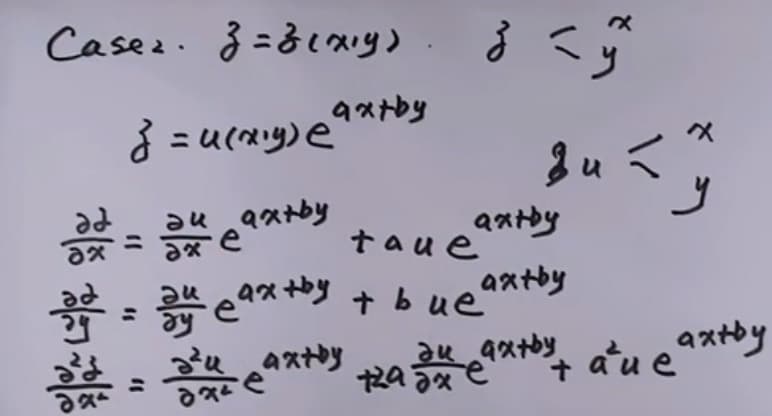 Case 2. z = z(x,y). z < x y
z = u(x,y) e^{ax+by} z u < x y
∂z/∂x = ∂u/∂x e^{ax+by} + a u e^{ax+by}
∂z/∂y = ∂u/∂y e^{ax+by} + b u e^{ax+by}
∂²z/∂x² = ∂²u/∂x² e^{ax+by} + 2a ∂u/∂x e^{ax+by} + a² u e^{ax+by}